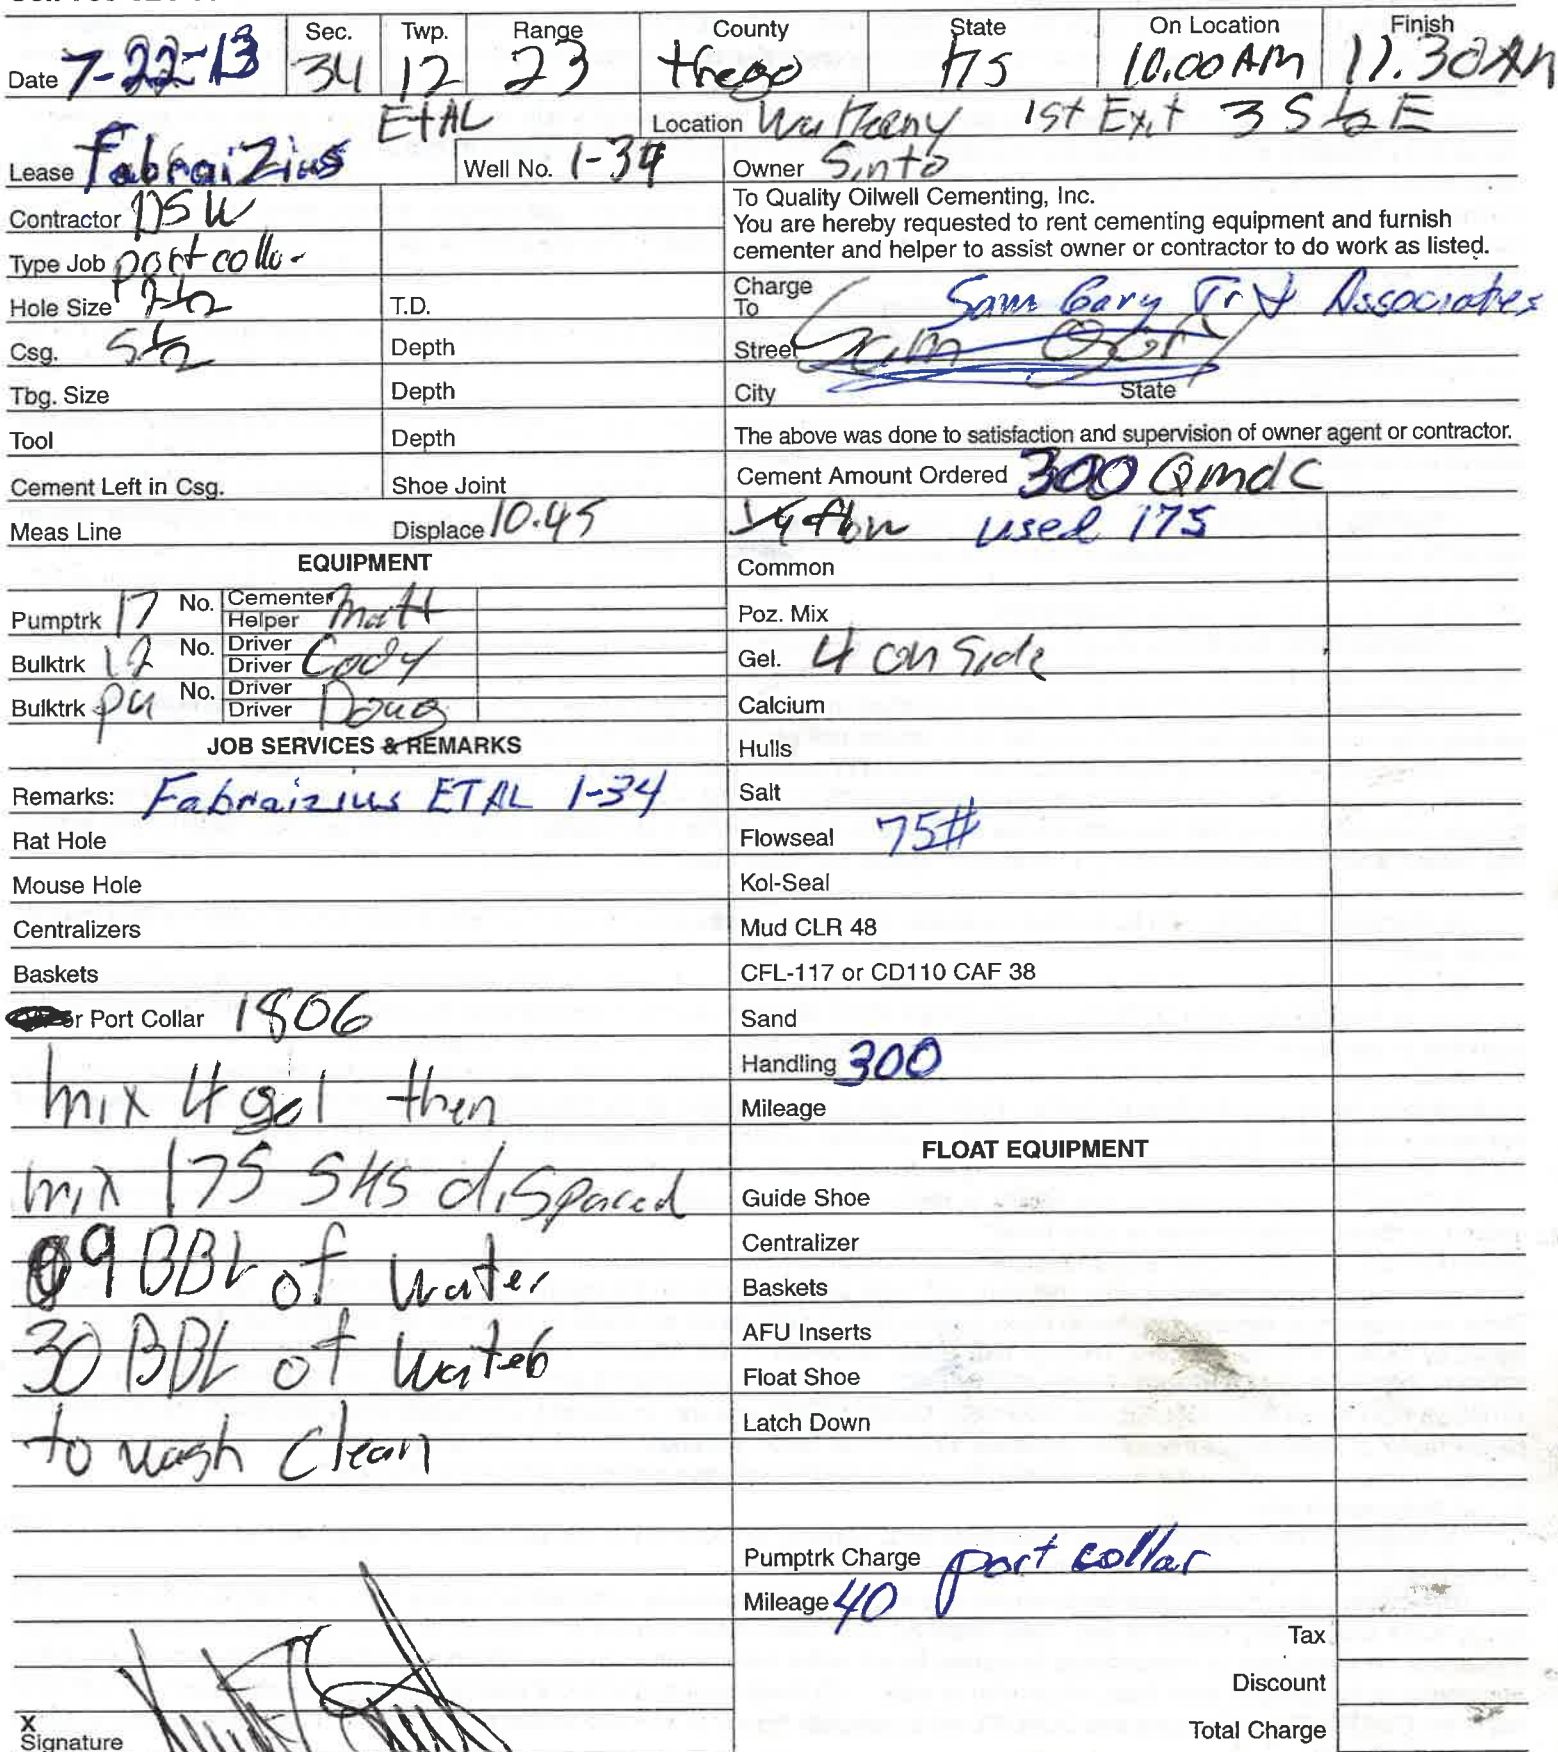 Sec. Twp. Range County State On Location Finish
Date 7-22-13 34 12 23 trego KS 10.00 AM 11.30 AM
Lease Fabraizius ETAL Well No. 1-34
Location Wakeeny 1st Exit 3 S ½ E
Owner Sinto
Contractor DSW
Type Job port colla
Hole Size 7½ T.D.
Csg. 5½ Depth
Tbg. Size Depth
Tool Depth
Cement Left in Csg. Shoe Joint
Meas Line Displace 10.45
To Quality Oilwell Cementing, Inc.
You are hereby requested to rent cementing equipment and furnish
cementer and helper to assist owner or contractor to do work as listed.
Charge To Sam Gary Jr & Associates
Street
City State
The above was done to satisfaction and supervision of owner agent or contractor.
Cement Amount Ordered 300 Qmdc
¼ flow used 175
EQUIPMENT
Pumptrk 17 No. Cementer Helper Matt
Bulktrk 12 No. Driver Driver Cody
Bulktrk pu No. Driver Driver Doug
JOB SERVICES & REMARKS
Remarks: Fabraizius ETAL 1-34
Rat Hole
Mouse Hole
Centralizers
Baskets
or Port Collar 1806
mix 4 gel then
mix 175 SKS dispaced
9 BBL of water
30 BBL of water
to wash clean
X
Signature
Common
Poz. Mix
Gel. 4 on Side
Calcium
Hulls
Salt
Flowseal 75#
Kol-Seal
Mud CLR 48
CFL-117 or CD110 CAF 38
Sand
Handling 300
Mileage
FLOAT EQUIPMENT
Guide Shoe
Centralizer
Baskets
AFU Inserts
Float Shoe
Latch Down
Pumptrk Charge port collar
Mileage 40
Tax
Discount
Total Charge